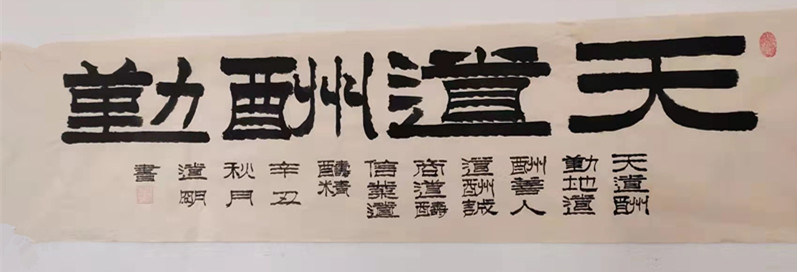 天道酬勤
天道酬
勤地道
酬善人
道酬誠
商道醻
信業道
醻精
辛丑
秋月
道明
書